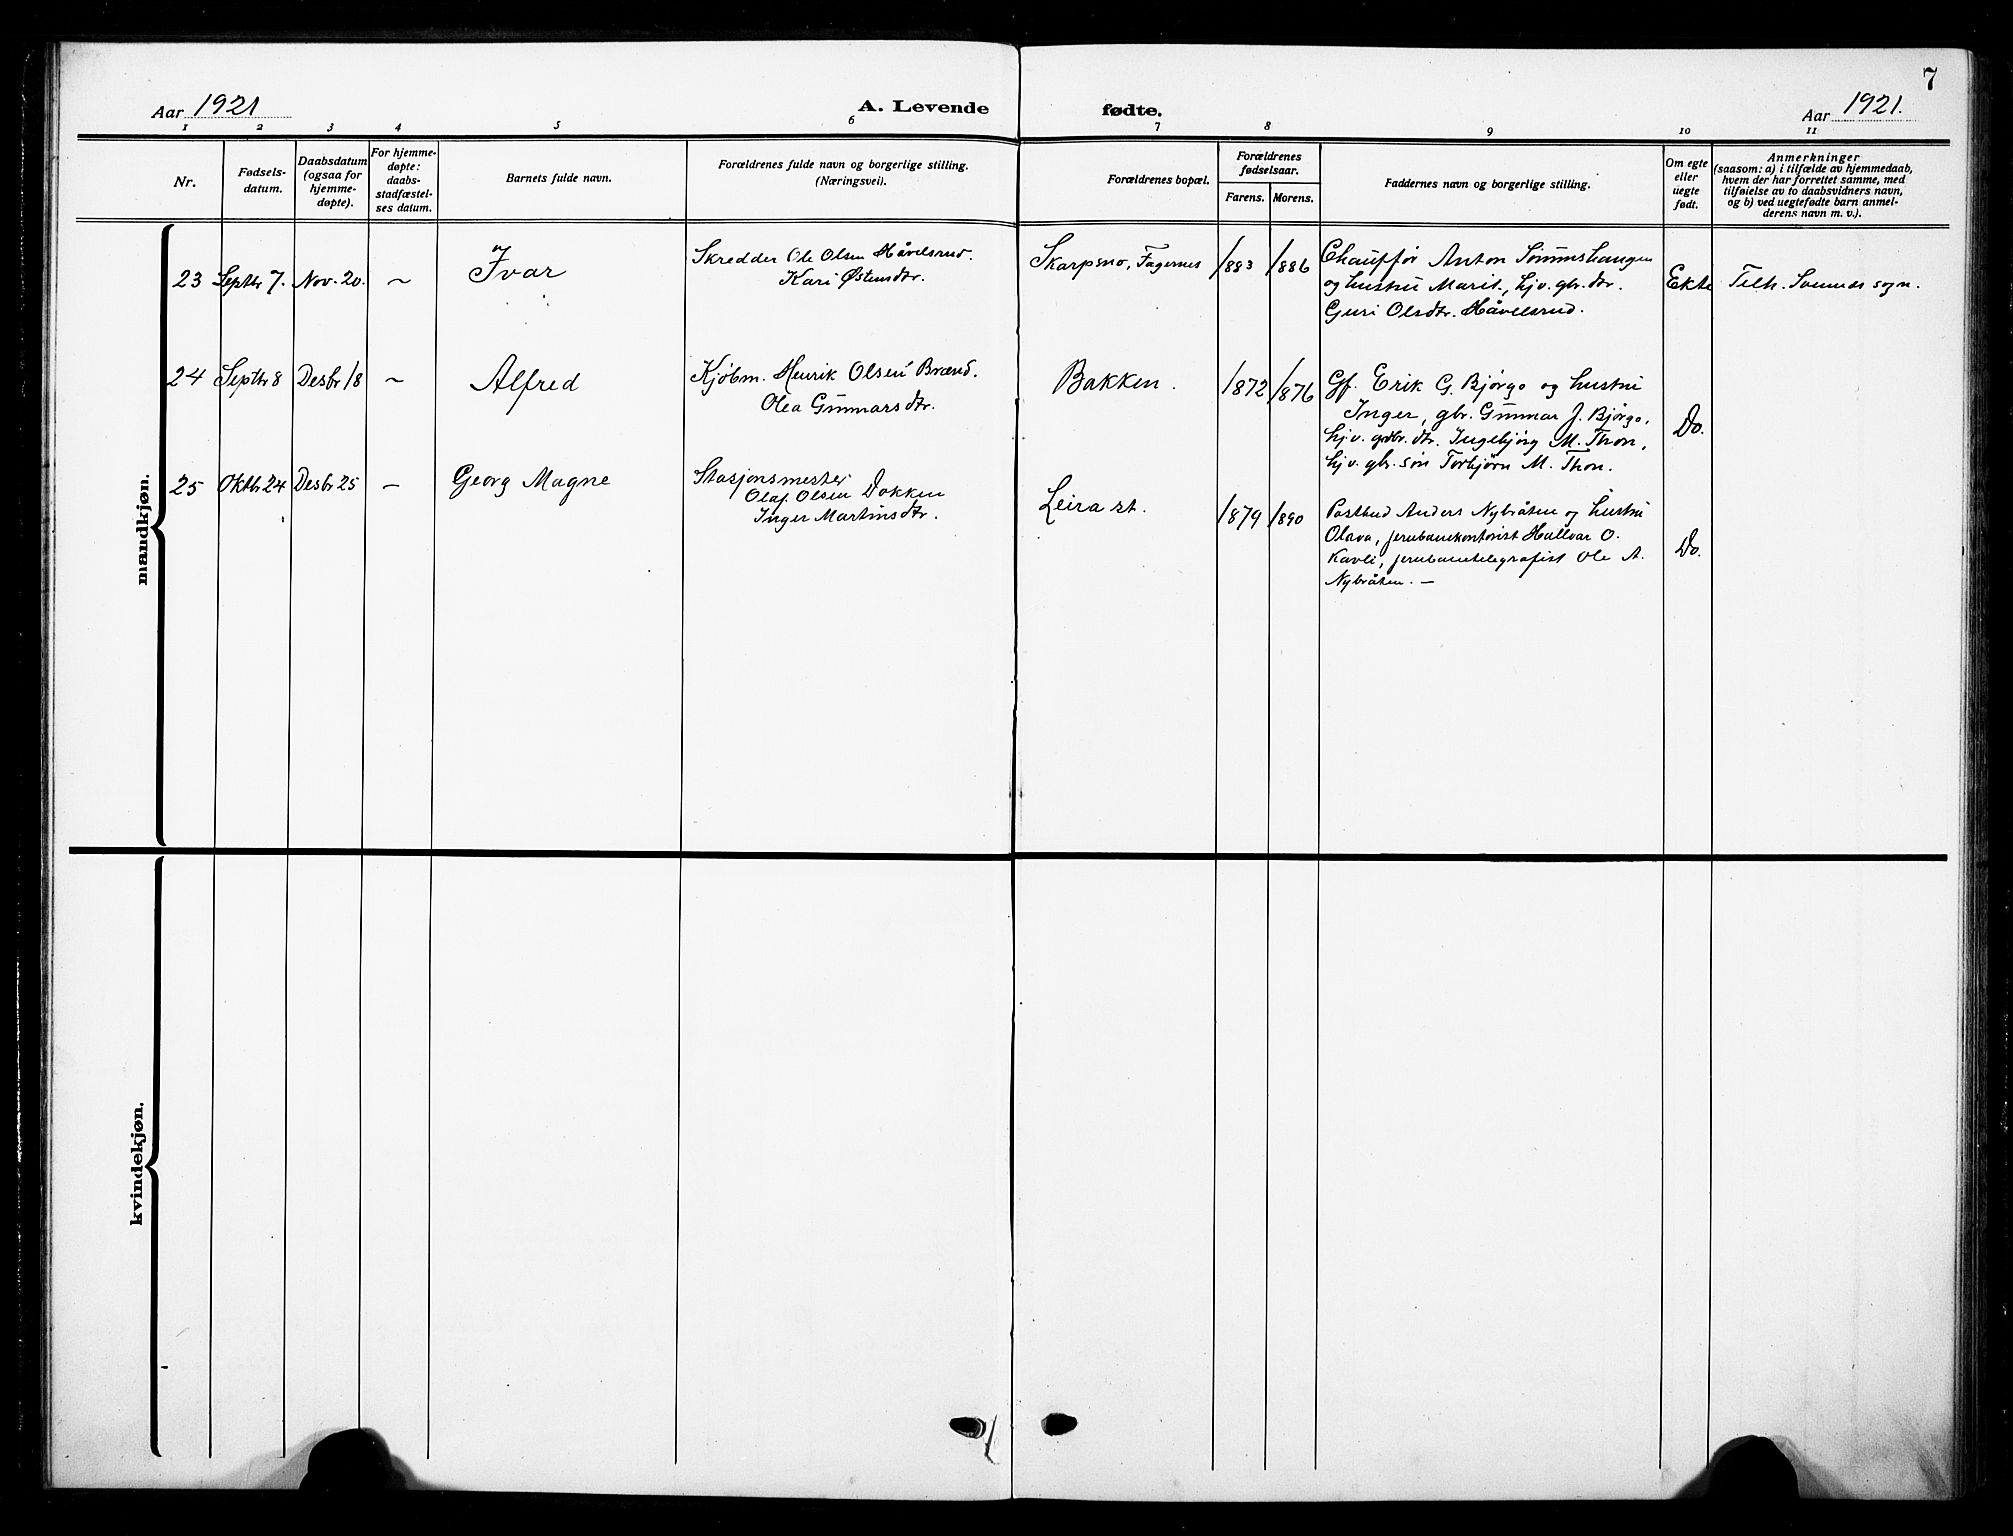 7
Aar 1921
A. Levende
fødte.
Aar 1921.
1 2 3 4 5 6 7 8 9 10 11
Nr.
Fødsels-
datum.
Daabsdatum
(ogsaa for
hjemme-
døpte).
For hjemme-
døpte:
daabs-
stadfæstel-
ses datum.
Barnets fulde navn.
Forældrenes fulde navn og borgerlige stilling.
(Næringsvei).
Forældrenes bopæl.
Forældrenes
fødselsaar.
Farens. Morens.
Faddernes navn og borgerlige stilling.
Om egte
eller
uegte
født.
Anmerkninger
(saasom: a) i tilfælde av hjemmedaab,
hvem der har forrettet samme, med
tilføielse av to daabsvidners navn,
og b) ved uegtefødte barn anmel-
derens navn m. v.).
mandkjøn.
23 Septbr 7. Nov. 20. ~ Ivar
Skredder Ole Olsen Håvelsrud.
Kari Østensdtr.
Skarpsno, Fagernes 1883 1886
Chauffør Anton
og hustru Marit, hjv. gbr. dtr.
Guri Olsdtr. Håvelsrud.
Ekte Tilh. sogn.
24 Septbr 8 Desbr 18 ~ Alfred
Kjøbm. Henrik Olsen Brænd.
Olea Gunnarsdtr.
Bakken. 1872 1876
Gf. Erik G. Bjørgo og hustru
Inger, gbr. Gunnar J. Bjørgo,
hjv. gdbr. dtr. Ingebjørg M. Thon,
hjv. gbr. søn Torbjørn M. Thon.
Do.
25 Oktbr 24 Desbr 25 – Georg Magne
Stasjonsmester
Olaf Olsen Dokken
Inger Martinsdtr.
Leira st. 1879 1890
Postbud Anders Nybråten og hustru
Olava, jernbanekontorist Hallvar O.
Kavli, jernbanetelegrafist Ole A.
Nybråten. –
Do.
kvindekjøn.